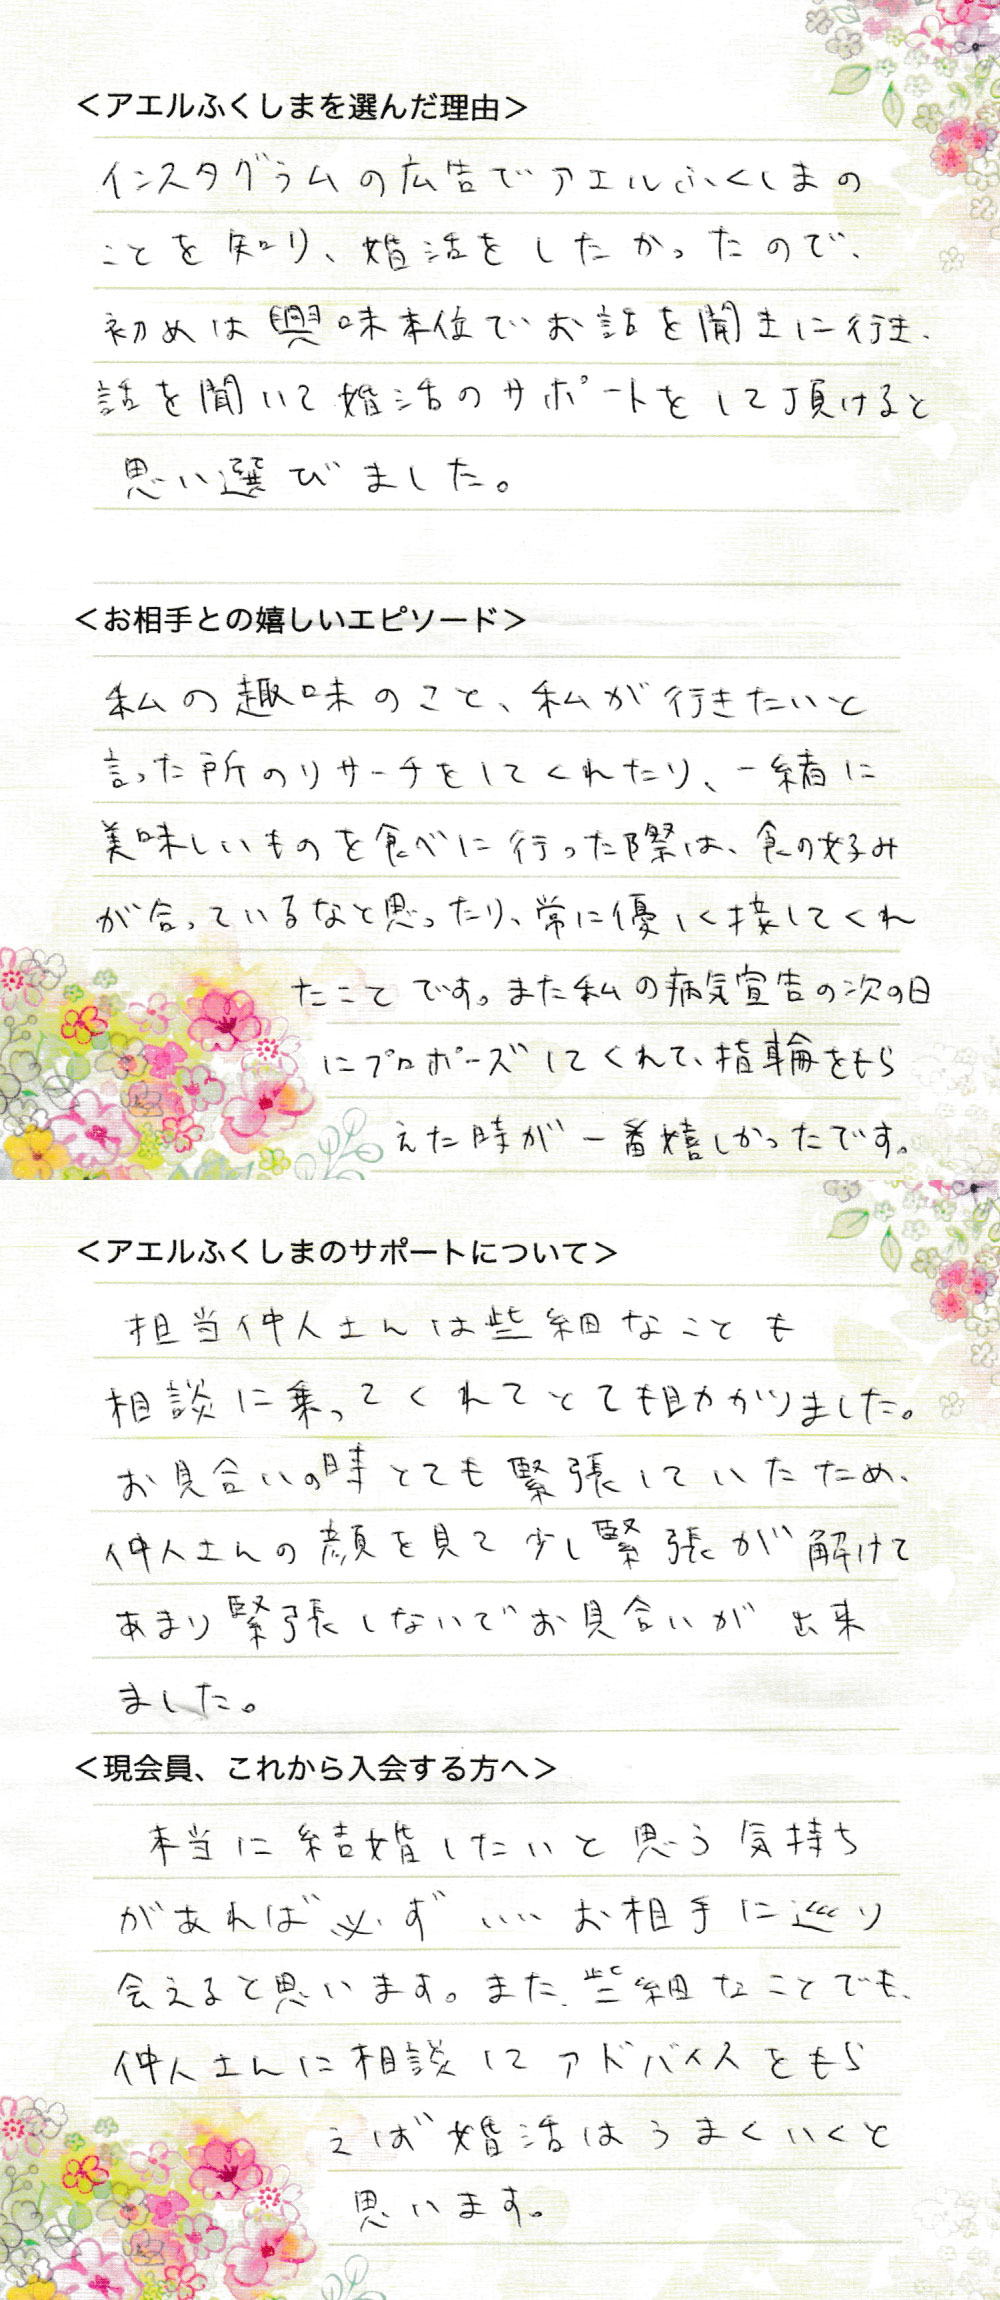 ＜アエルふくしまを選んだ理由＞
インスタグラムの広告でアエルふくしまの
ことを知り、婚活をしたかったので、
初めは興味本位でお話を聞きに行き、
話を聞いて婚活のサポートをして頂けると
思い選びました。
＜お相手との嬉しいエピソード＞
私の趣味のこと、私が行きたいと
言った所のリサーチをしてくれたり、一緒に
美味しいものを食べに行った際は、食の好み
が合っているなと思ったり、常に優しく接してくれ
たことです。また私の病気宣告の次の日
にプロポーズしてくれて、指輪をもら
えた時が一番嬉しかったです。
＜アエルふくしまのサポートについて＞
担当仲人さんは些細なことも
相談に乗ってくれてとても助かりました。
お見合いの時とても緊張していたため、
仲人さんの顔を見て少し緊張が解けて
あまり緊張しないでお見合いが出来
ました。
＜現会員、これから入会する方へ＞
本当に結婚したいと思う気持ち
があれば必ずいいお相手に巡り
会えると思います。また、些細なことでも、
仲人さんに相談してアドバイスをもら
えば婚活はうまくいくと
思います。